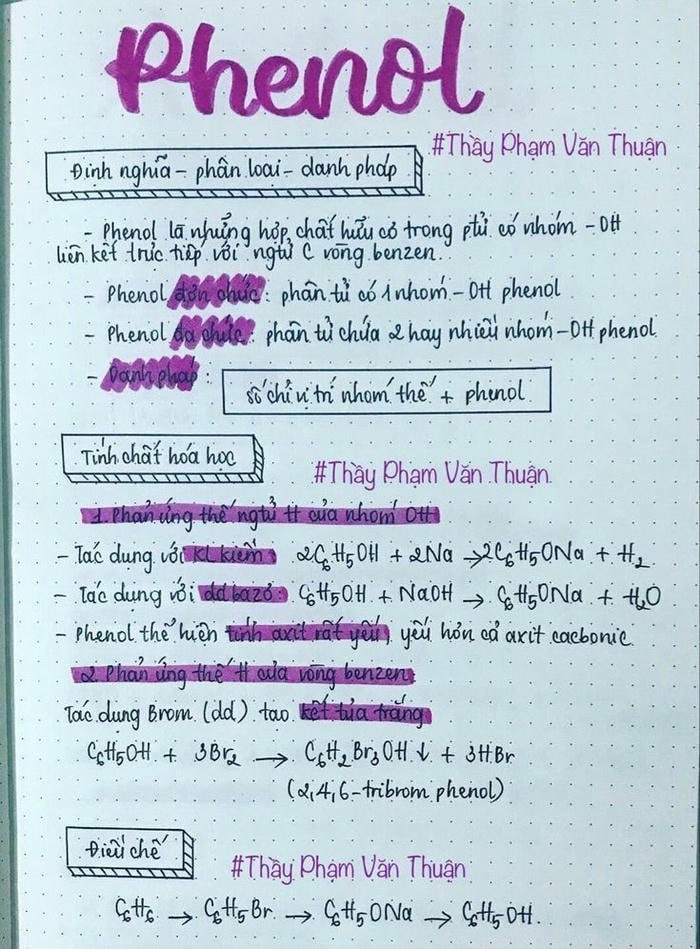 Phenol
#Thầy Phạm Văn Thuận
Định nghĩa - phân loại - danh pháp
- Phenol là những hợp chất hữu cơ trong ptử có nhóm -OH
liên kết trực tiếp với ngtử C vòng benzen.
- Phenol đơn chức: phân tử có 1 nhóm -OH phenol
- Phenol đa chức: phân tử chứa 2 hay nhiều nhóm -OH phenol
- Danh pháp:
số chỉ vị trí nhóm thế + phenol
Tính chất hóa học
#Thầy Phạm Văn Thuận
1. Phản ứng thế ngtử H của nhóm OH
- Tác dụng với KL kiềm: 2C₆H₅OH + 2Na → 2C₆H₅ONa + H₂
- Tác dụng với dd bazơ: C₆H₅OH + NaOH → C₆H₅ONa + H₂O
- Phenol thể hiện tính axit rất yếu, yếu hơn cả axit cacbonic
2. Phản ứng thế H của vòng benzen
Tác dụng Brom (dd) tạo kết tủa trắng
C₆H₅OH + 3Br₂ → C₆H₂Br₃OH ↓ + 3HBr
(2,4,6-tribrom phenol)
Điều chế
#Thầy Phạm Văn Thuận
C₆H₆ → C₆H₅Br → C₆H₅ONa → C₆H₅OH.